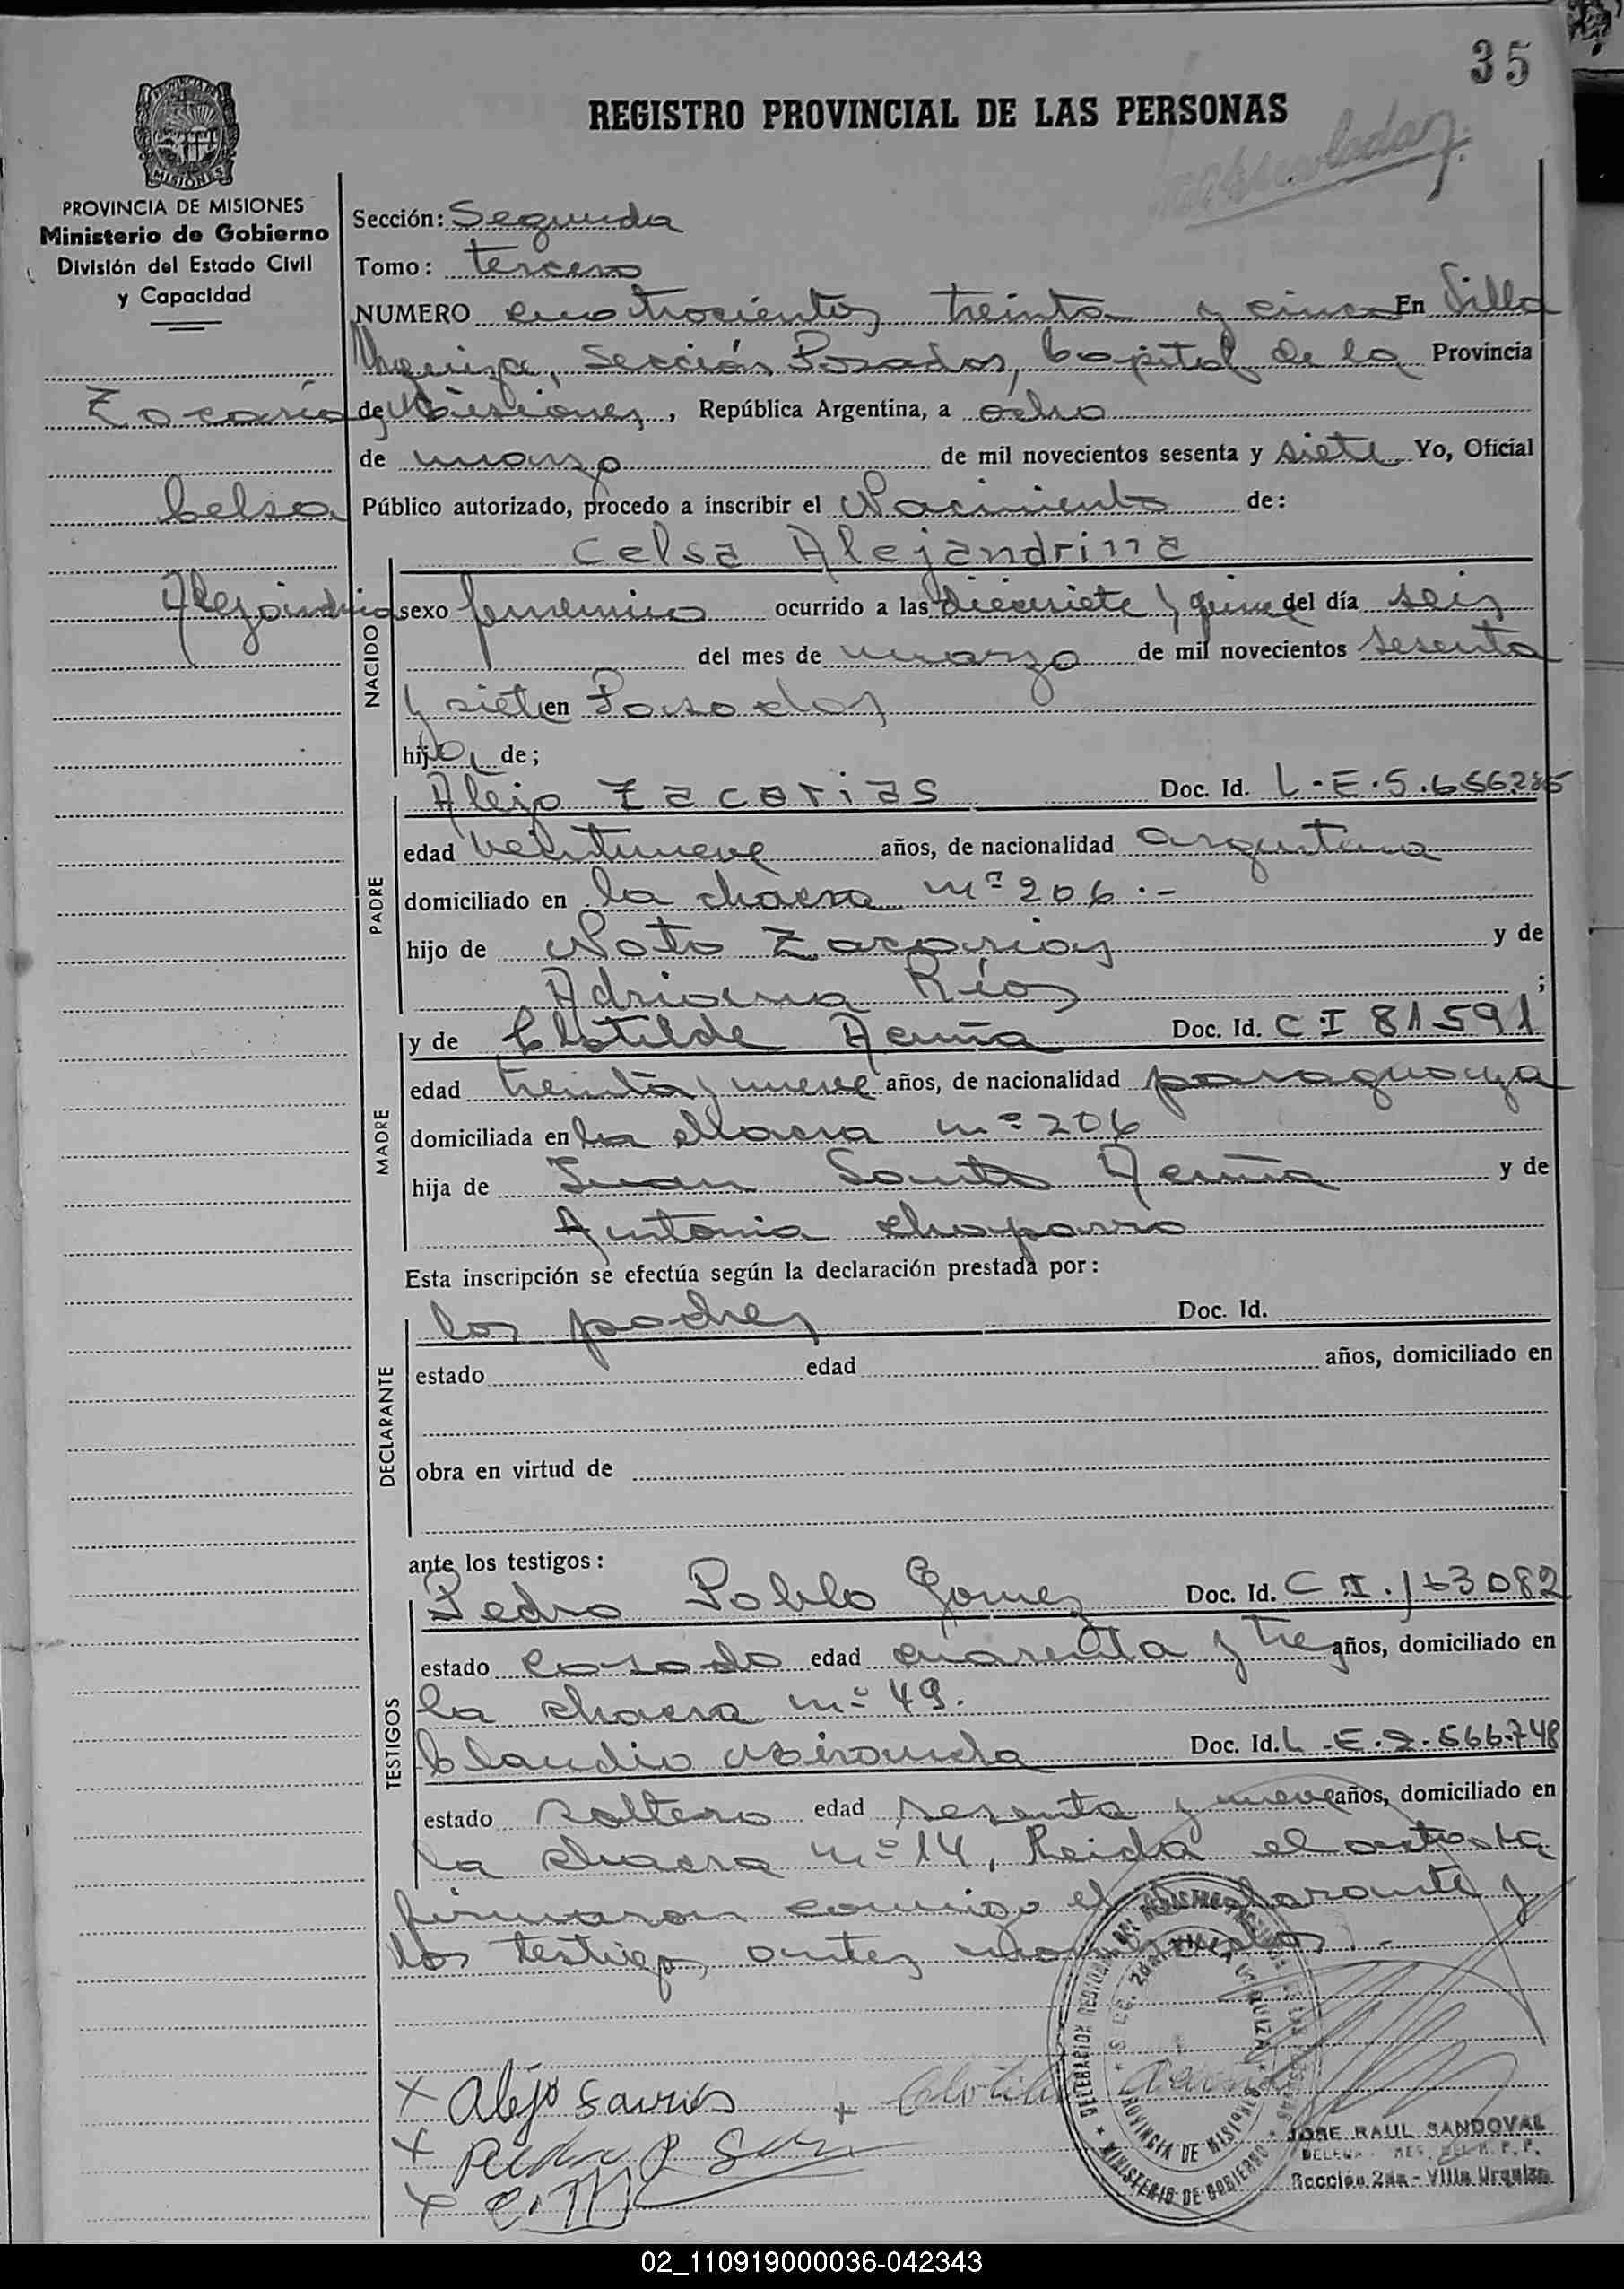 35
REGISTRO PROVINCIAL DE LAS PERSONAS
MISIONES
PROVINCIA DE MISIONES
Ministerio de Gobierno
División del Estado Civil
y Capacidad
Sección: Segunda
Tomo: tercero
NUMERO cuatrocientos treinta y cinco En Villa
Urquiza, Sección Posadas, Capital de la Provincia
de Misiones, República Argentina, a ocho
de marzo de mil novecientos sesenta y siete Yo, Oficial
Público autorizado, procedo a inscribir el Nacimiento de:
Zacarias
Celsa
Alejandrina
Celsa Alejandrina
NACIDO
sexo femenino ocurrido a las diecisiete y quince del día seis
del mes de marzo de mil novecientos sesenta
y siete en Posadas
hija de;
PADRE
Alejo Zacarias Doc. Id. L-E.5.656.285
edad veintinueve años, de nacionalidad argentina
domiciliado en la chacra nº 206.-
hijo de Noto Zacarias y de
Adriana Ríos ;
MADRE
y de Clotilde Acuña Doc. Id. C I 81591
edad treinta y nueve años, de nacionalidad paraguaya
domiciliada en la chacra nº 206
hija de Juan Santo Acuña y de
Antonia chaparro
Esta inscripción se efectúa según la declaración prestada por:
DECLARANTE
los padres Doc. Id.
estado edad años, domiciliado en
obra en virtud de
ante los testigos:
TESTIGOS
Pedro Pablo Gomez Doc. Id. C.I.163082
estado casado edad cuarenta y tres años, domiciliado en
la chacra nº 49.
Claudio Miranda Doc. Id. L-E.2.566.748
estado soltero edad sesenta y nueve años, domiciliado en
la chacra nº 14, Leida el acta la
firmaron conmigo el declarante y
los testigos antes nombrados.-
Alejo
Clotilde
DELEGACION REGISTRO PROVINCIAL DE LAS PERSONAS
VILLA URQUIZA
PROVINCIA DE MISIONES
MINISTERIO DE GOBIERNO
JOSE RAUL SANDOVAL
Sección 2da - Villa Urquiza
02_110919000036-042343